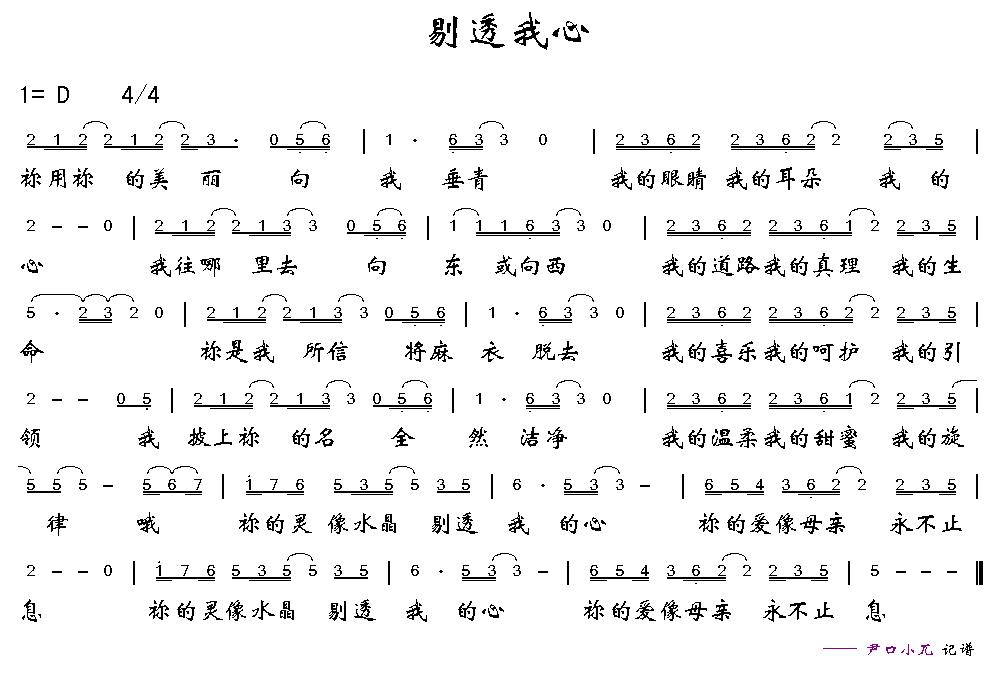 剔透我心
1= D 4/4
2 1 2 2 1 2 2 3 · 0 5 6 | 1 · 6 3 3 0 | 2 3 6 2 2 3 6 2 2 2 3 5 |
祢用祢 的美 丽 向 我 垂青 我的眼睛 我的耳朵 我 的
2 – – 0 | 2 1 2 2 1 3 3 0 5 6 | 1 1 1 6 3 3 0 | 2 3 6 2 2 3 6 1 2 2 3 5 |
心 我往哪 里去 向 东 或向西 我的道路我的真理 我的生
5 · 2 3 2 0 | 2 1 2 2 1 3 3 0 5 6 | 1 · 6 3 3 0 | 2 3 6 2 2 3 6 2 2 2 3 5 |
命 祢是我 所信 将麻 衣 脱去 我的喜乐我的呵护 我的引
2 – – 0 5 | 2 1 2 2 1 3 3 0 5 6 | 1 · 6 3 3 0 | 2 3 6 2 2 3 6 1 2 2 3 5 |
领 我 披上祢 的名 全 然 洁净 我的温柔我的甜蜜 我的旋
5 5 5 – 5 6 7 | 1 7 6 5 3 5 5 3 5 | 6 · 5 3 3 – | 6 5 4 3 6 2 2 2 3 5 |
律 哦 祢的灵 像水晶 剔透 我 的心 祢的爱像母亲 永不止
2 – – 0 | 1 7 6 5 3 5 5 3 5 | 6 · 5 3 3 – | 6 5 4 3 6 2 2 2 3 5 | 5 – – –
息 祢的灵像水晶 剔透 我 的心 祢的爱像母亲 永不止 息
—— 尹口小兀 记谱